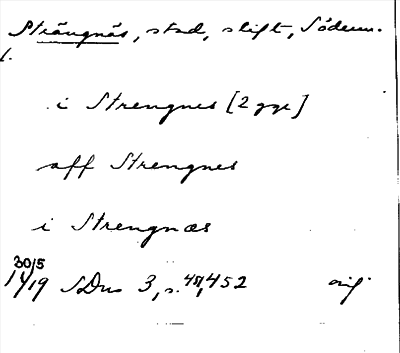 Strängnäs, stad, stift, Söderm.
l.
i Strengnes [2 ggr]
aff Strengnes
i Strengnæs
30/5
1419 SDns 3, s. 451, 452 orig.